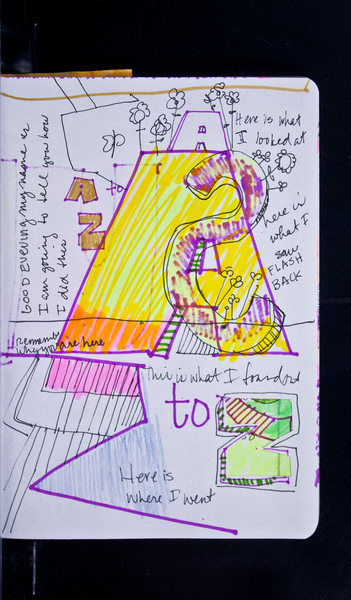 Good Evening my name is
I am going to tell you how
I did this
Here is what
I looked at
A
B
A
to
Z
A
S
Here is
what I
saw
FLASH
BACK
remember
why you are here
This is what I
to
Z
Here is
where I went